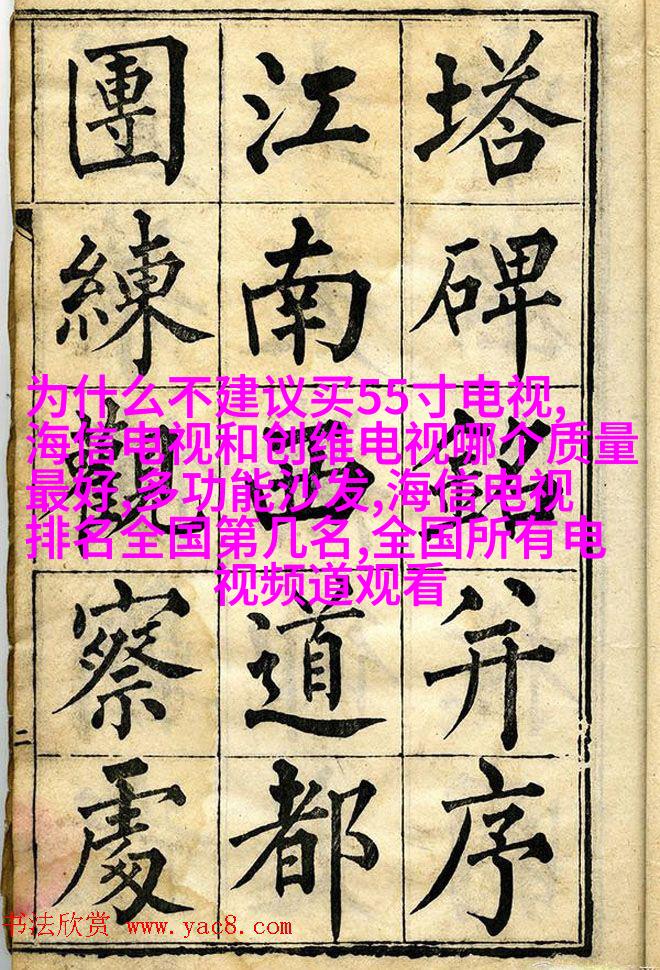 塔碑銘并序
江南西道都
團練觀察處
二
为什么不建议买55寸电视,
海信电视和创维电视哪个质量
最好,多功能沙发,海信电视
排名全国第几名,全国所有电
视频道观看
书法欣赏 www.yac8.com